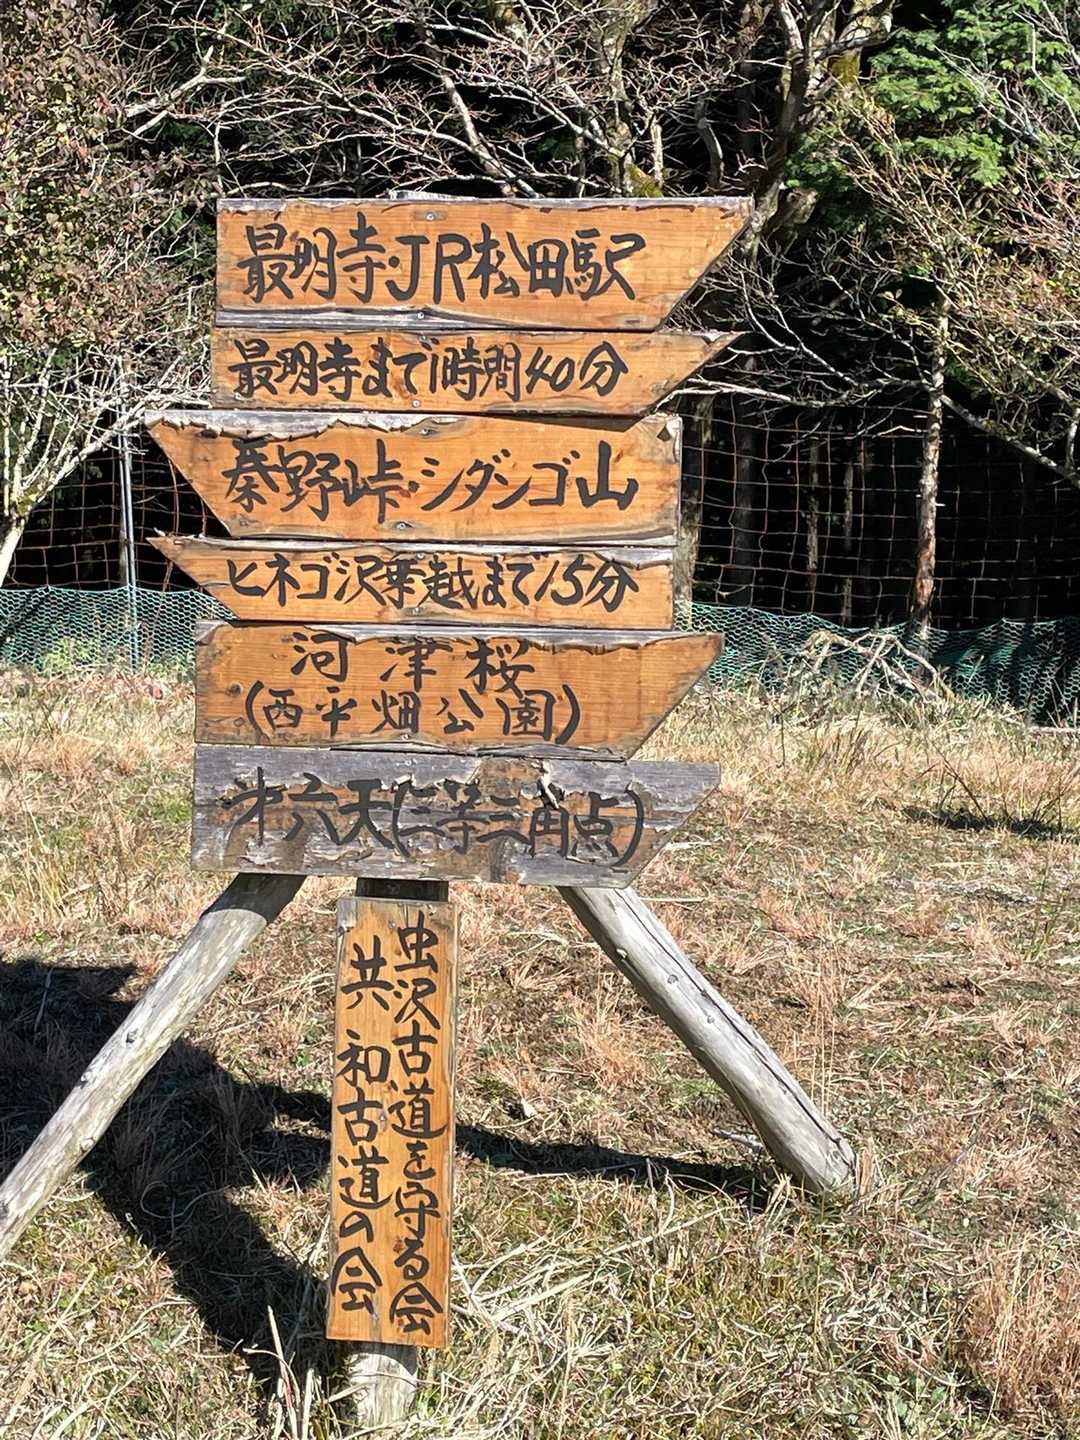 最明寺・JR松田駅
最明寺まで1時間40分
秦野峠・シダンゴ山
ヒネゴ沢乗越まで15分
河津桜
(西平畑公園)
第六天(三等三角点)
虫沢古道を守る会
共和古道の会